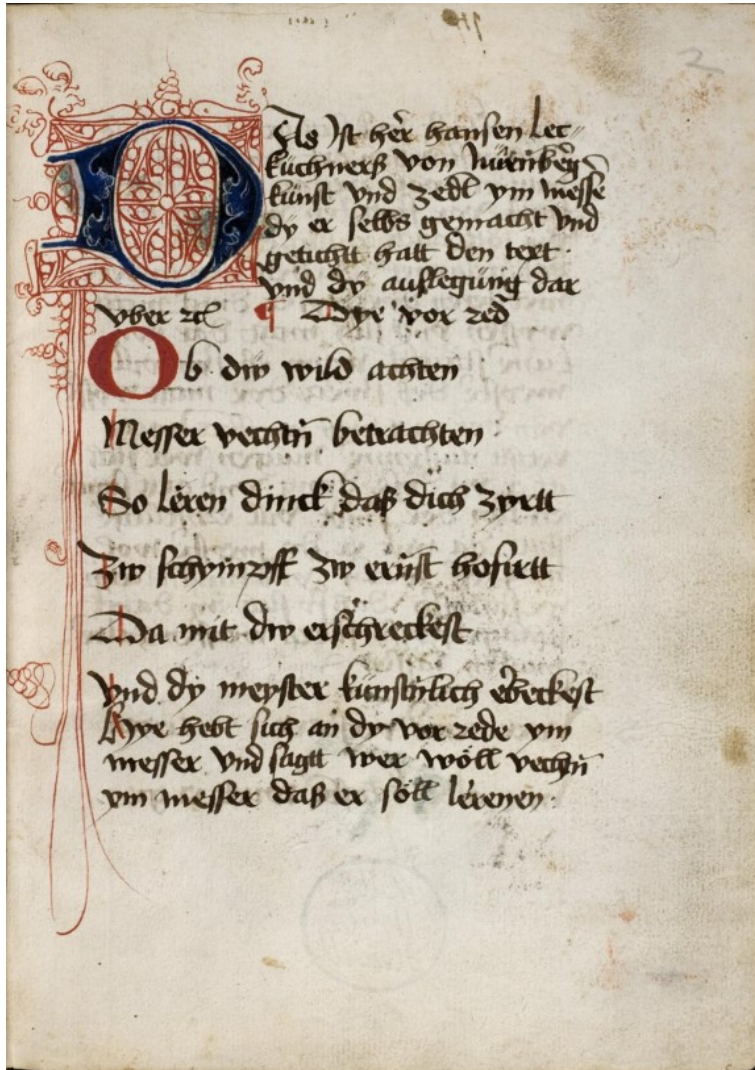 2
DAs Ist her hansen Lec-
kuchners von Nurnberg
kunst vnd zedl ym messe
dy er selbs gemacht vnd
getichtt hatt den text ·
vnd dy auslegung dar
vber ꝛc ¶ Dye vor red
Ob dw wild achten
Messer vechtn̄ betrachten
So leren dinck daß dich zyrtt
Zw schympff zw ernst hofirtt
Da mit dw erschreckest
Vnd dy meyster kunstnlich erbeckest
Hye hebt sich an dy vor rede ym
messer vnd sagtt wer wöll vechtn̄
ym messer daß er söll lerenen ·